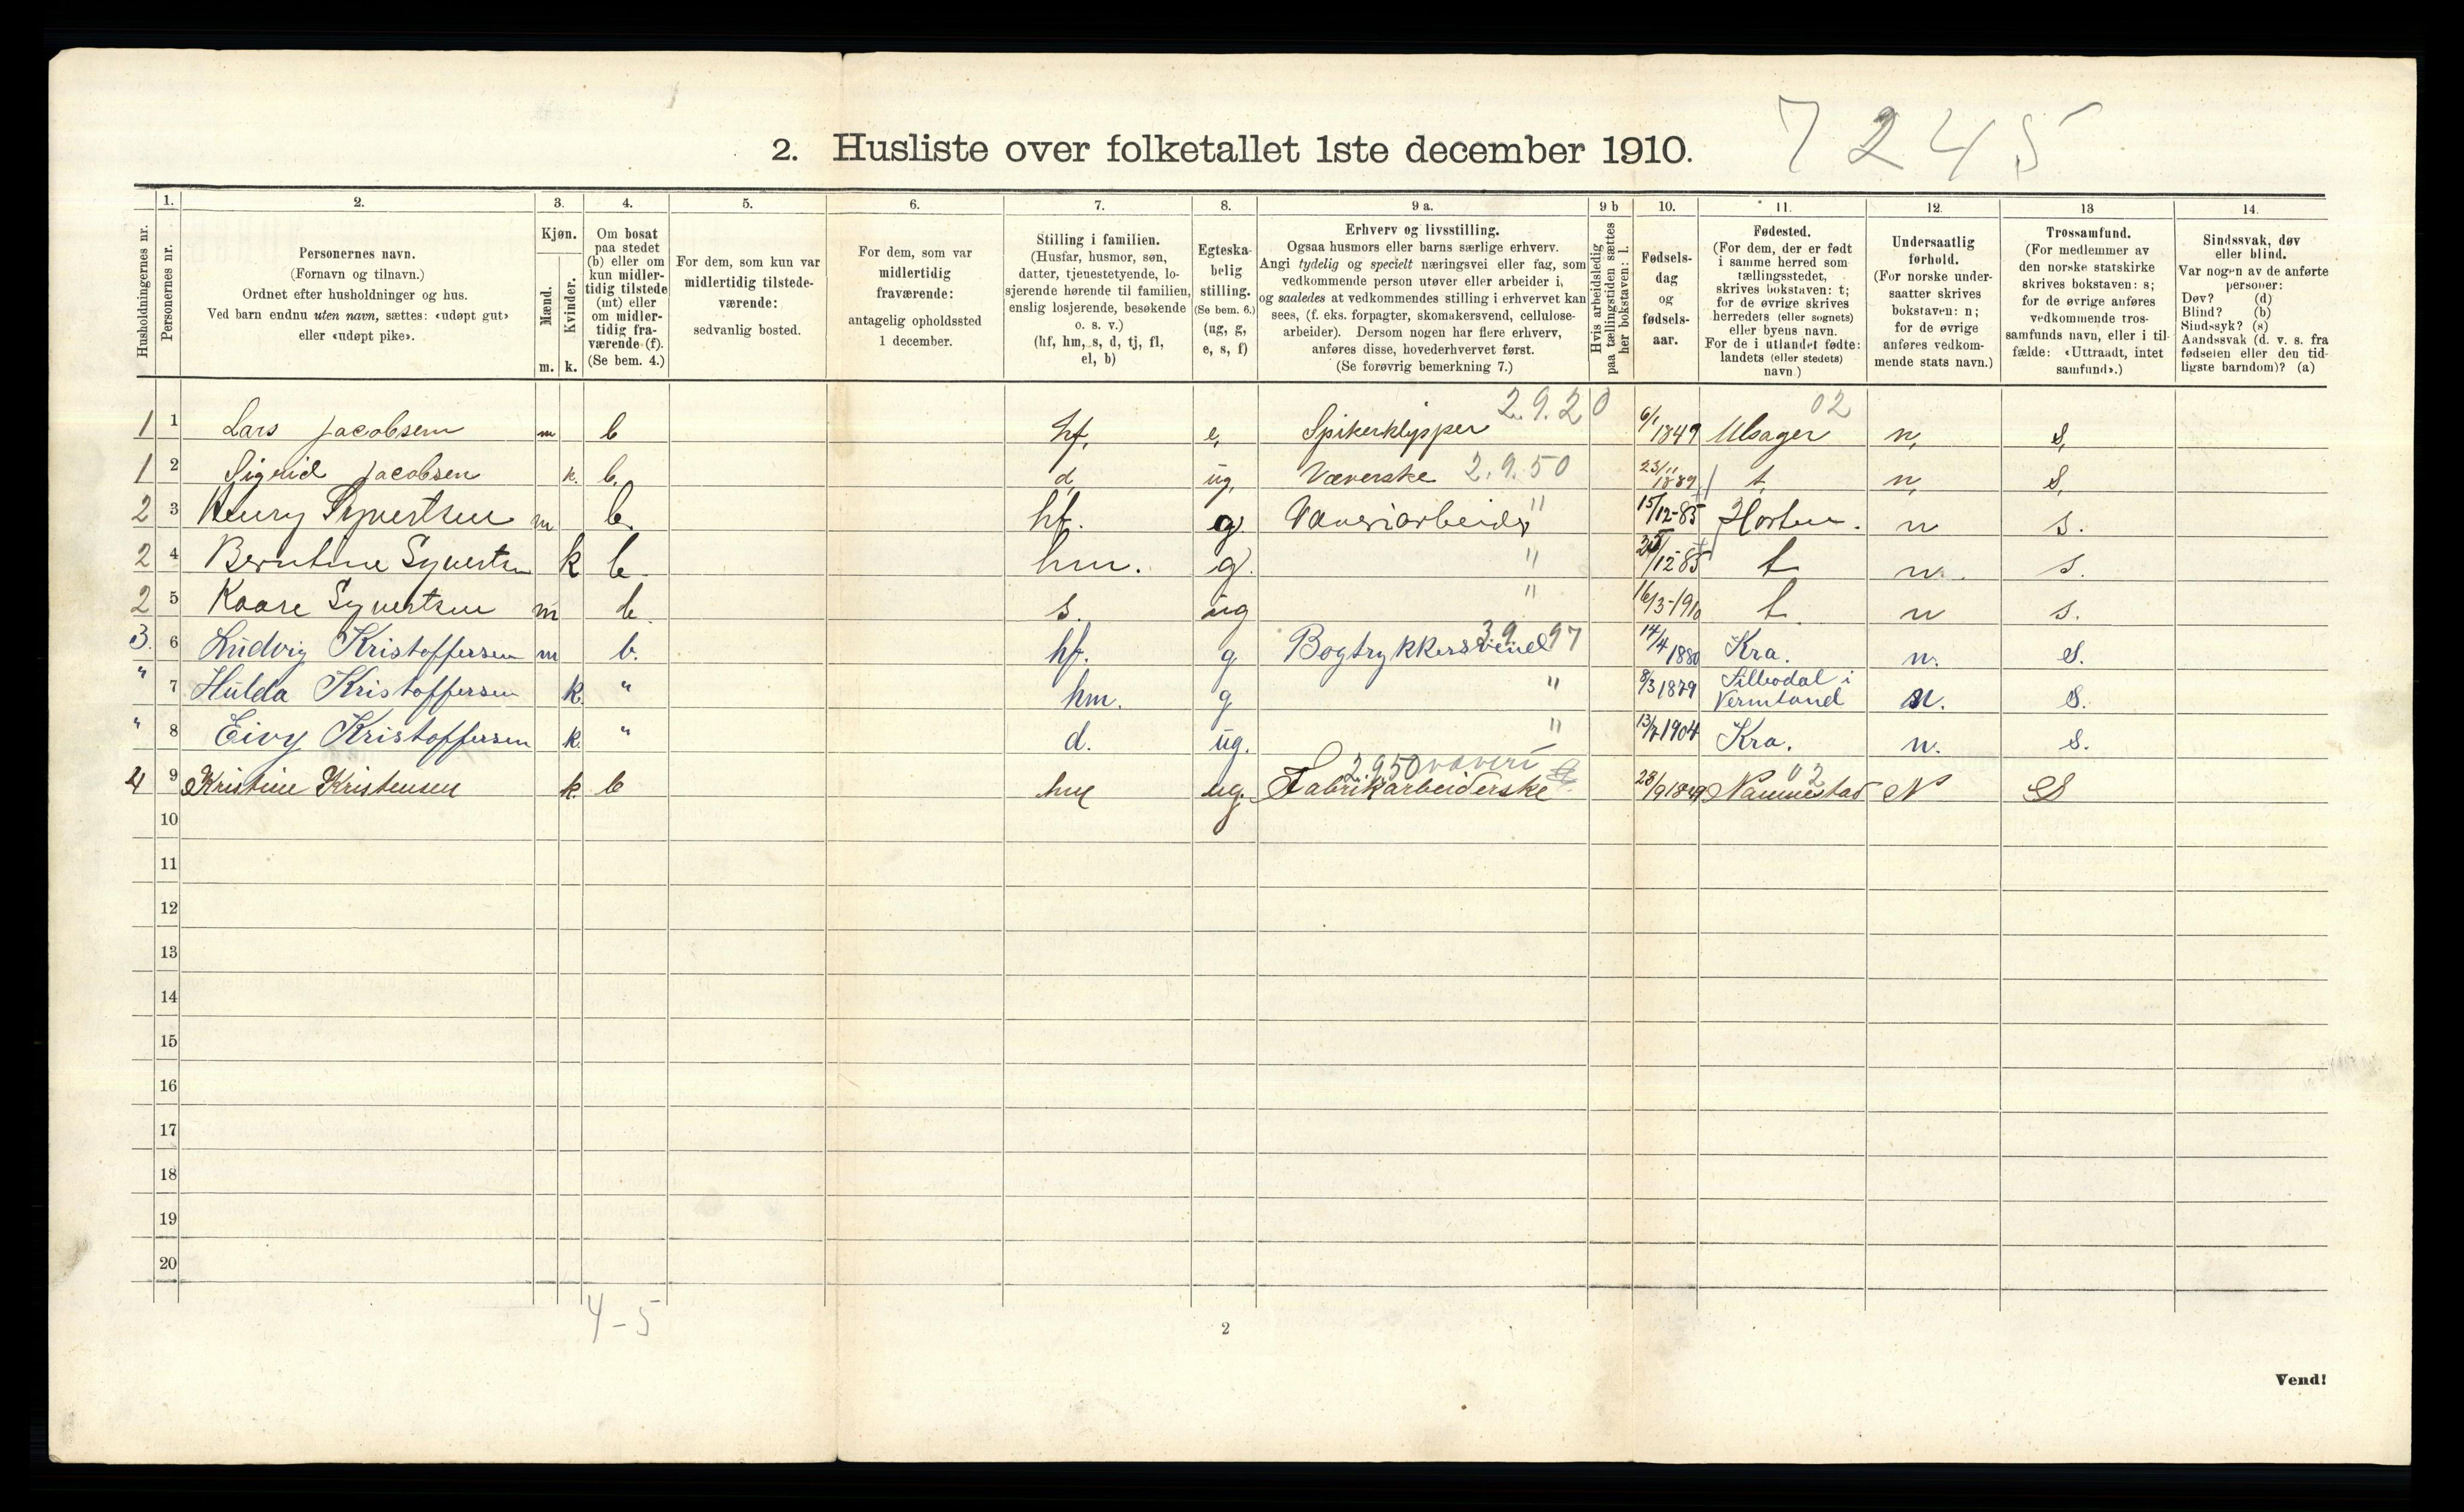 2. Husliste over folketallet 1ste december 1910.
7245
1.
2.
3.
4.
5.
6.
7.
8.
9 a.
9 b
10.
11.
12.
13
14.
Husholdningernes nr.
Personernes nr.
Personernes navn.
(Fornavn og tilnavn.)
Ordnet efter husholdninger og hus.
Ved barn endnu uten navn, sættes: «udøpt gut»
eller «udøpt pike».
Kjøn.
Mænd.
Kvinder.
m. k.
Om bosat
paa stedet
(b) eller om
kun midler-
tidig tilstede
(mt) eller
om midler-
tidig fra-
værende (f).
(Se bem. 4.)
For dem, som kun var
midlertidig tilstede-
værende:
sedvanlig bosted.
For dem, som var
midlertidig
fraværende:
antagelig opholdssted
1 december.
Stilling i familien.
(Husfar, husmor, søn,
datter, tjenestetyende, lo-
sjerende hørende til familien,
enslig losjerende, besøkende
o. s. v.)
(hf, hm, s, d, tj, fl,
el, b)
Egteska-
belig
stilling.
(Se bem. 6.)
(ug, g,
e, s, f)
Erhverv og livsstilling.
Ogsaa husmors eller barns særlige erhverv.
Angi tydelig og specielt næringsvei eller fag, som
vedkommende person utøver eller arbeider i,
og saaledes at vedkommendes stilling i erhvervet kan
sees, (f. eks. forpagter, skomakersvend, cellulose-
arbeider). Dersom nogen har flere erhverv,
anføres disse, hovederhvervet først.
(Se forøvrig bemerkning 7.)
Hvis arbeidsledig
paa tællingstiden sættes
her bokstaven: l.
Fødsels-
dag
og
fødsels-
aar.
Fødested.
(For dem, der er født
i samme herred som
tællingsstedet,
skrives bokstaven: t;
for de øvrige skrives
herredets (eller sognets)
eller byens navn.
For de i utlandet fødte:
landets (eller stedets)
navn.)
Undersaatlig
forhold.
(For norske under-
saatter skrives
bokstaven: n;
for de øvrige
anføres vedkom-
mende stats navn.)
Trossamfund.
(For medlemmer av
den norske statskirke
skrives bokstaven: s;
for de øvrige anføres
vedkommende tros-
samfunds navn, eller i til-
fælde: «Uttraadt, intet
samfund».)
Sindssvak, døv
eller blind.
Var nogen av de anførte
personer:
Døv? (d)
Blind? (b)
Sindssyk? (s)
Aandssvak (d. v. s. fra
fødselen eller den tid-
ligste barndom)? (a)
2.9.20 02
1 1 Lars Jacobsen m b hf, e, Spikerklypper 6/1 1849 Ulsager n, S,
1 2 Sigrid Jacobsen k. b. d, ug, Væverske 2.9.50 23/11 1889 t, n, S,
2 3 Henry Syvertsen m b. hf. g. Væveriarbeider " 15/12-85 Horten. n s.
2 4 Berntine Syvertsen k b. hm. g. " /12-85 t n. s.
2 5 Kaare Syvertsen m b. s. ug " 16/3-1910 t. n s.
3. 6 Ludvig Kristoffersen m b. hf. g Bogtrykkersvend 3.9.97 14/4 1880 Kra. n. S.
" 7 Hulda Kristoffersen k. " hm. g " 8/3 1879 Silbodal i Vermland n. S.
" 8 Eivy Kristoffersen k. " d. ug. " 13/7 1904 Kra. n. S.
2950 væveri 02
4 9 Kristine Kristensen k. b hm ug. Fabrikarbeiderske 28/9 1849 Nannestad N S
10
11
12
13
14
15
16
17
18
19
20
4-5
2
Vend!